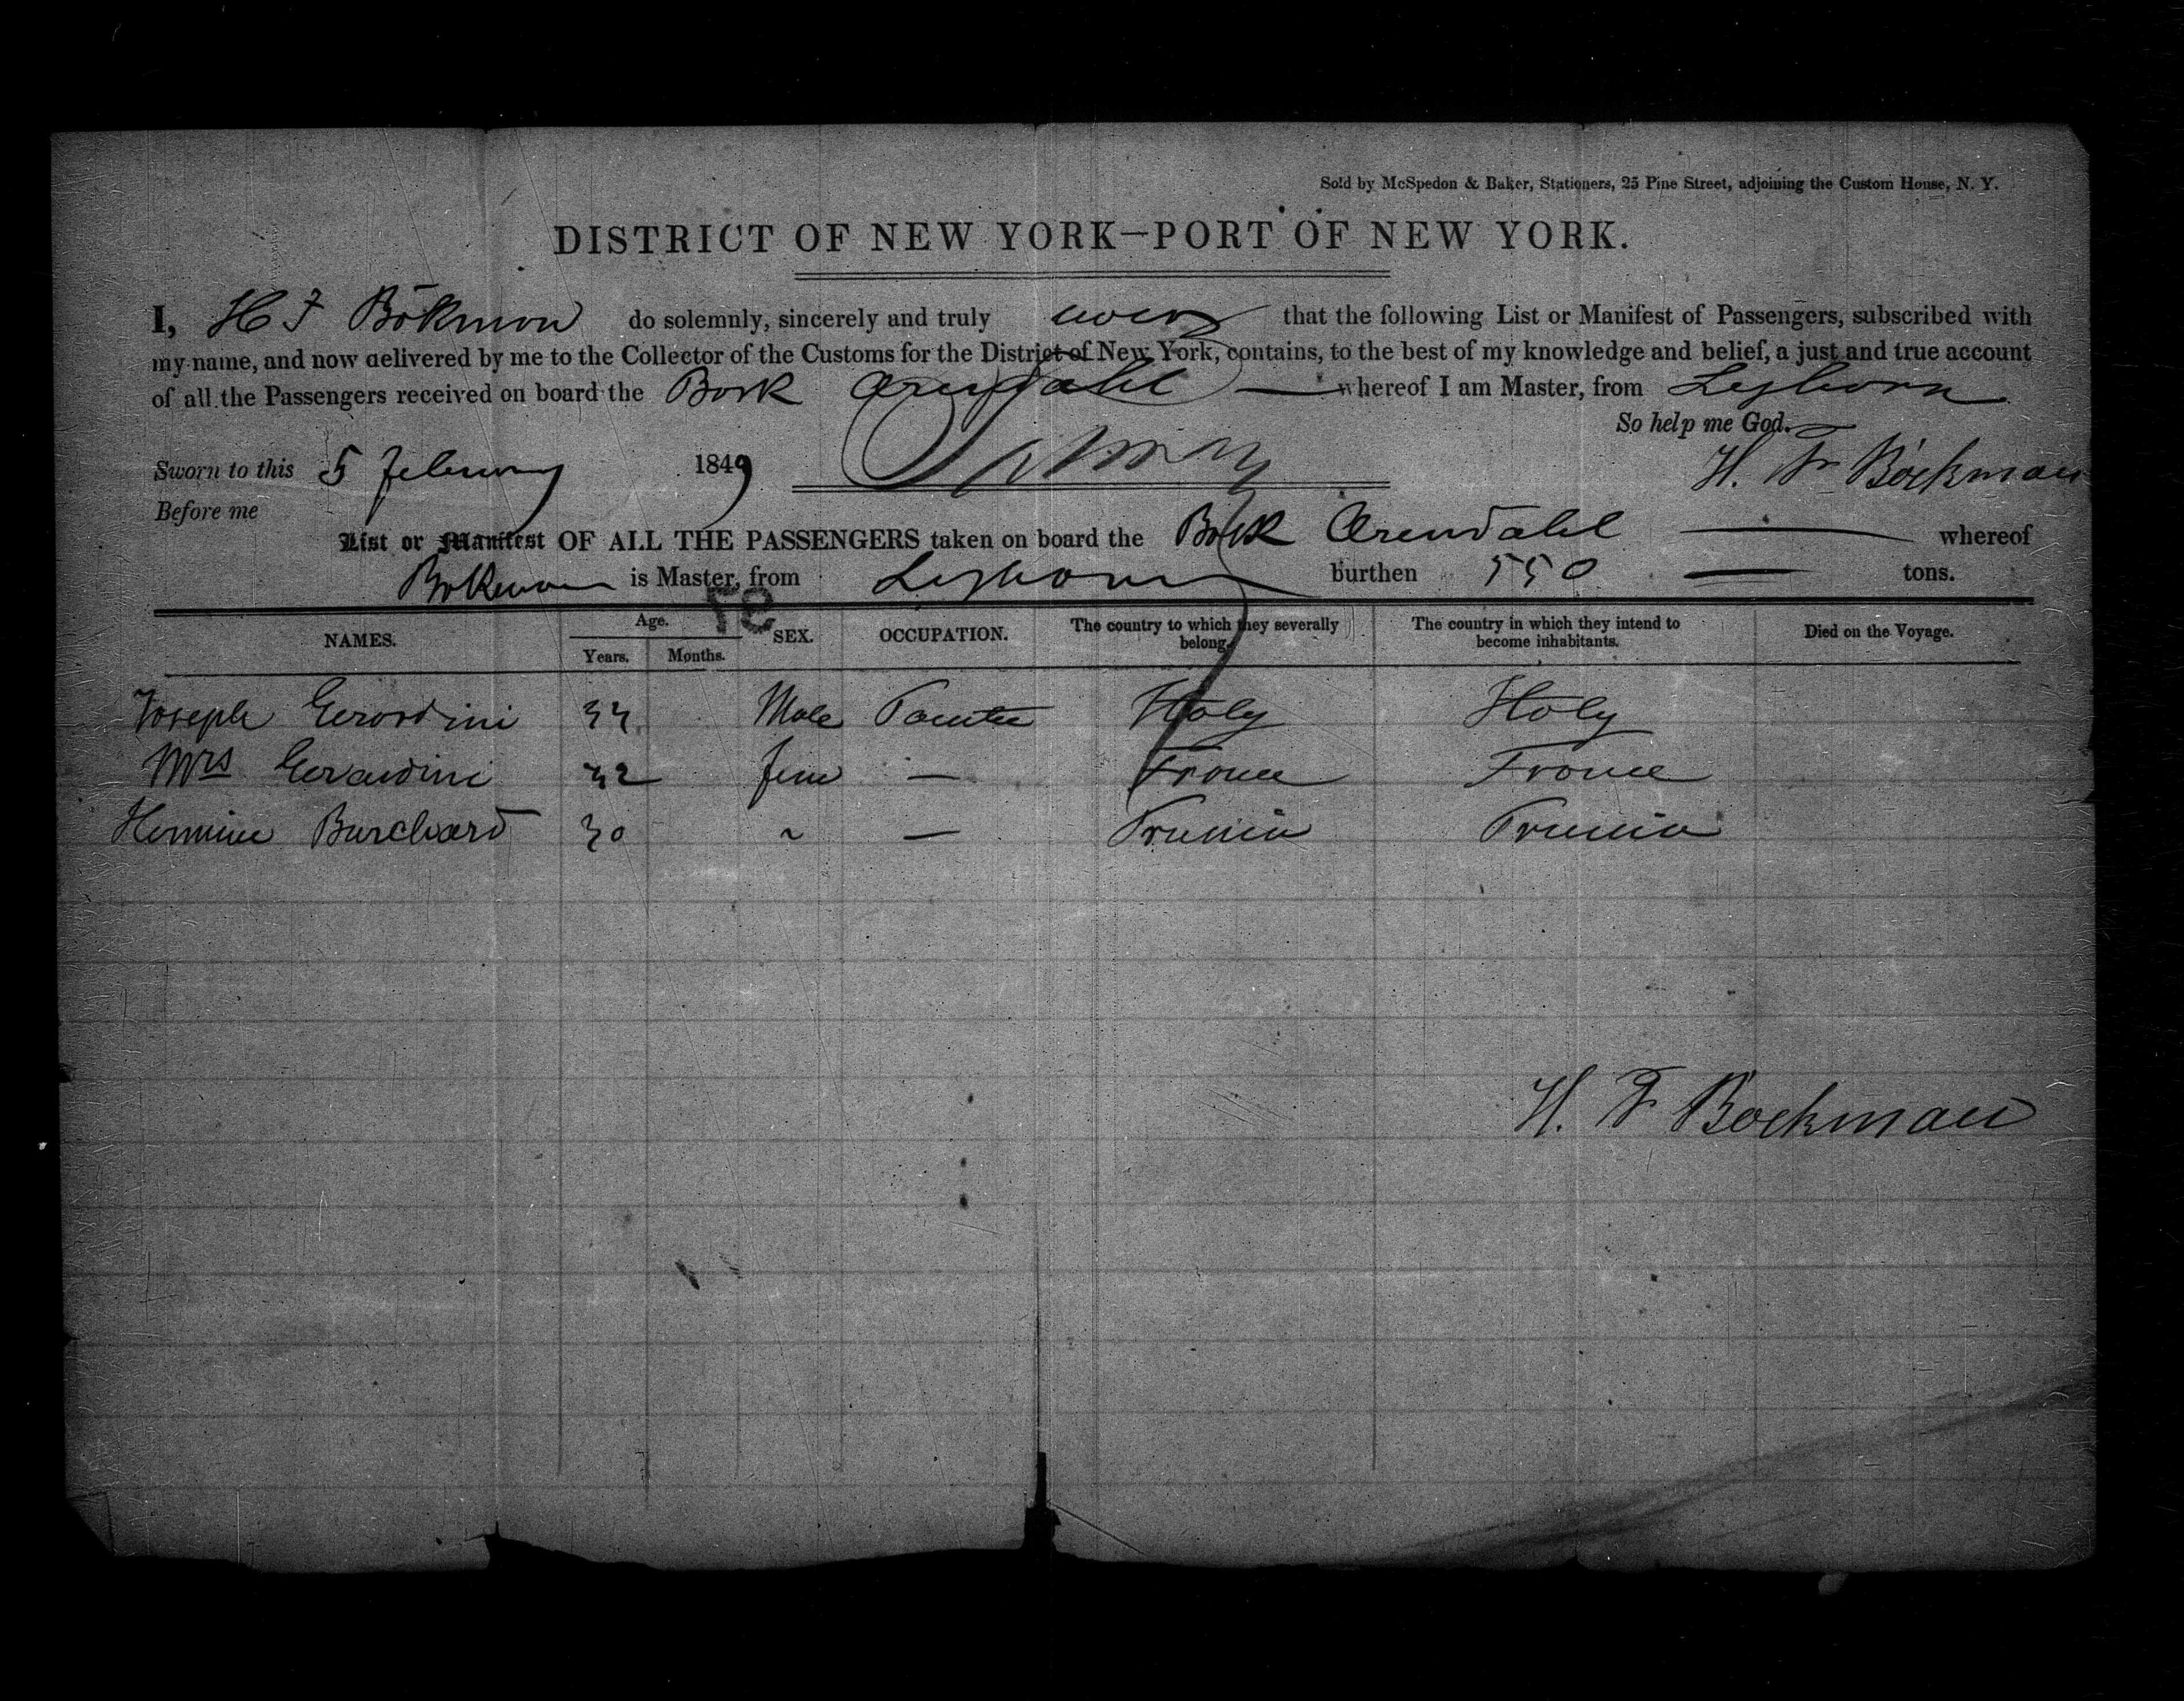 Sold by McSpedon & Baker, Stationers, 25 Pine Street, adjoining the Custom House, N. Y.
DISTRICT OF NEW YORK—PORT OF NEW YORK.
I, H F Bökman do solemnly, sincerely and truly swear that the following List or Manifest of Passengers, subscribed with
my name, and now delivered by me to the Collector of the Customs for the District of New York, contains, to the best of my knowledge and belief, a just and true account
of all the Passengers received on board the Bark Arendahl — whereof I am Master, from Leghorn
So help me God.
Sworn to this 5 February 1849 H. F Böckman
Before me
List or Manifest OF ALL THE PASSENGERS taken on board the Bark Arendahl — whereof
Bokman is Master, from Leghorn burthen 550 — tons.
NAMES. Age. SEX. OCCUPATION. The country to which they severally belong. The country in which they intend to become inhabitants. Died on the Voyage.
Years. Months.
Joseph Gerardini 34 Male Painter Italy Italy
Mrs Gerardini 32 fem — France France
Hermine Burchard 30 ~ — Prussia Prussia
H. F Böckman